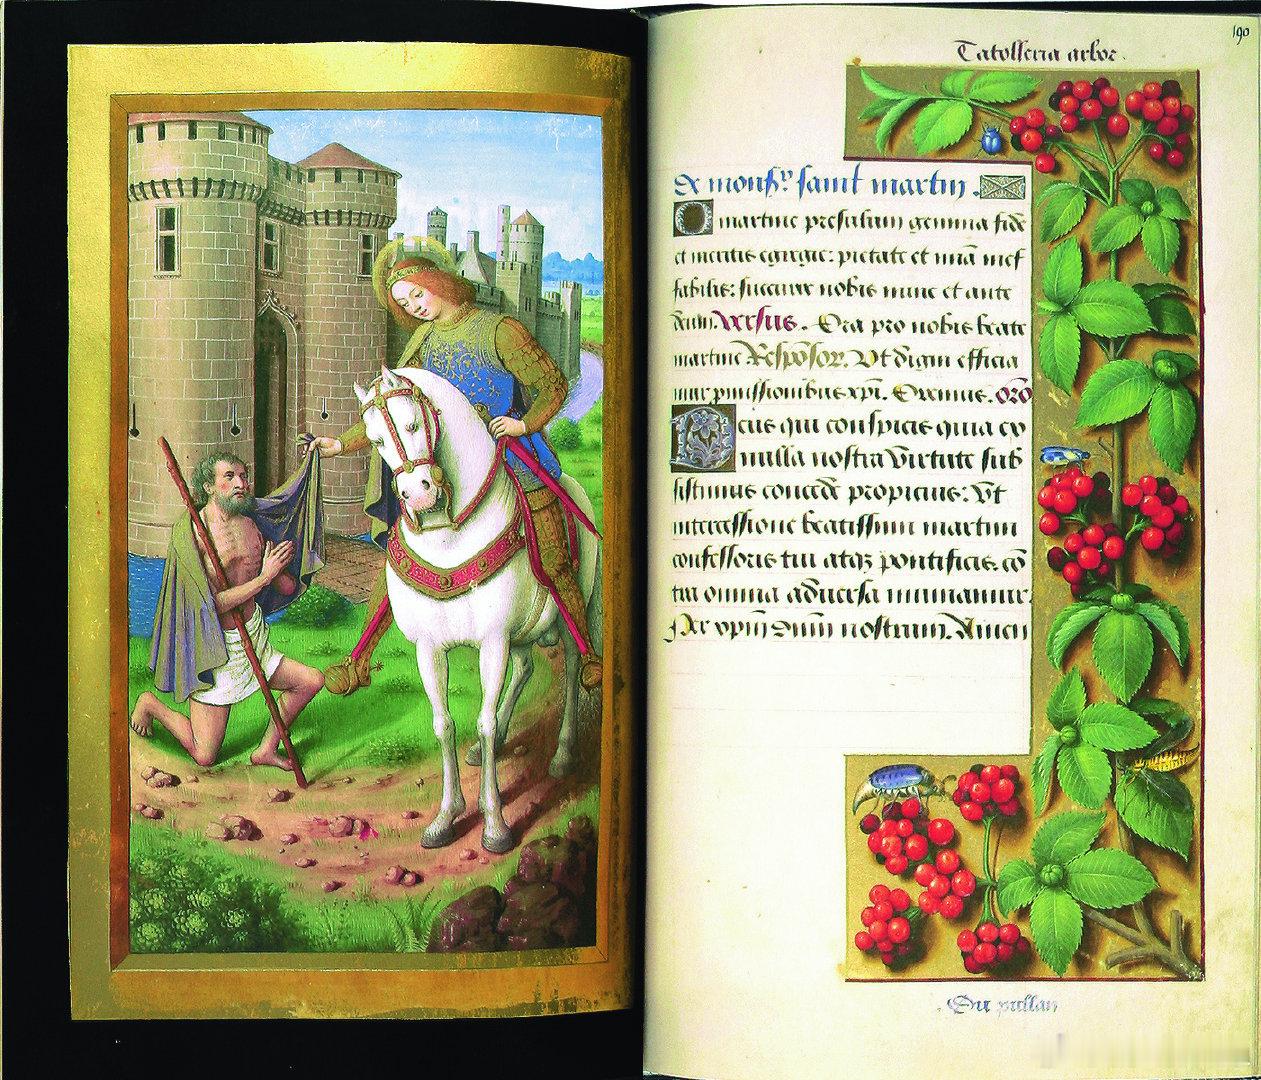 190
Tatolseria arbor.
De monsr saint martin.
O martine presulum gemma fide
et meritis egregie: pietate et mīa inef
fabilis: succurre nobis nunc et ante
deum. Versus. Ora pro nobis beate
martine Responsor. Vt digni efficia
mur pmissionibus xpi. Oremus. oro
Deus qui conspicis quia ex
nulla nostra virtute sub
sistimus concede propicius: Vt
intercessione beatissimi martini
confessoris tui atqz pontificis. cō
tra omnia aduersa muniamur.
Per xpm dnm nostrum. Amen
Du